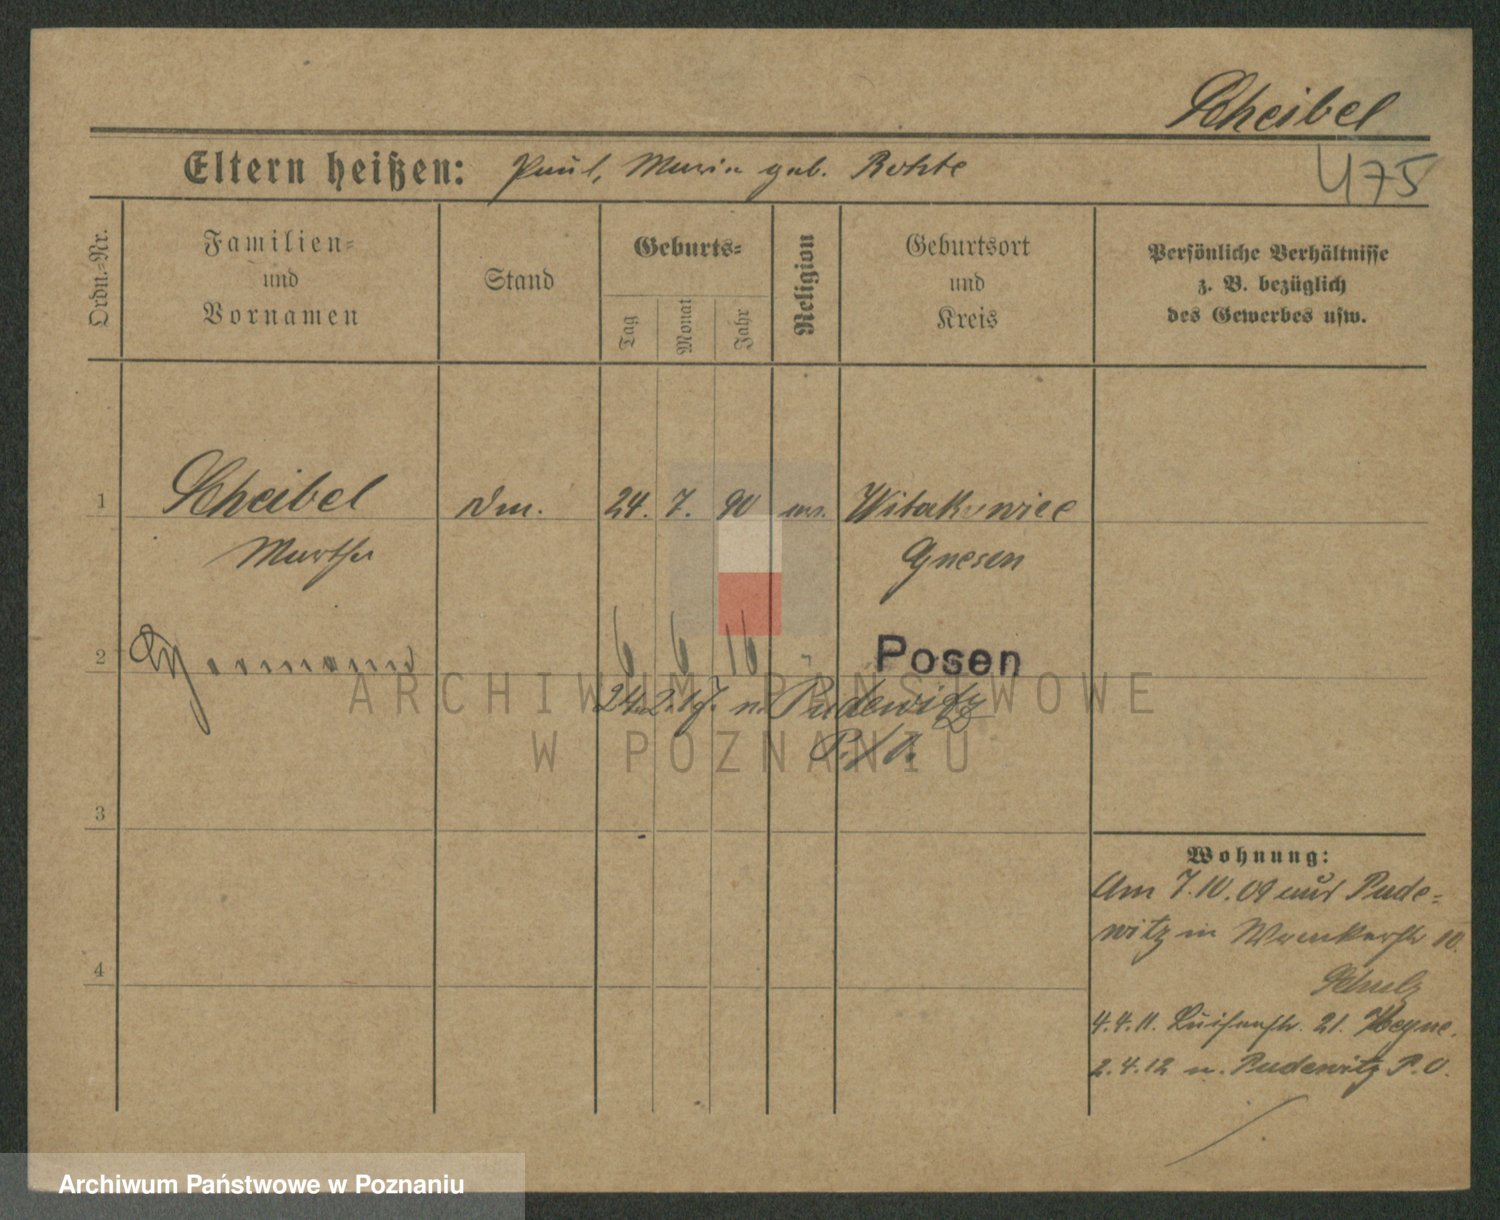 Scheibel
Eltern heißen: Paul, Maria geb. Rohte
475
Ordn.-Nr.
Familien-
und
Vornamen
Stand
Geburts-
Tag
Monat
Jahr
Religion
Geburtsort
und
Kreis
Persönliche Verhältnisse
z. B. bezüglich
des Gewerbes usw.
1 Scheibel 24. 7. 90 Witakowice
Martha Gnesen
2 6 6 16 Posen
24. 2. 17. n. Pudewitz
P./O.
3
4
Wohnung:
Am 7.10.09 aus Pude=
witz in 10.
Schulz
4.4.11. Luisenstr. 21. Heyne.
2.4.12 n. Pudewitz P.O.
ARCHIWUM PAŃSTWOWE
W POZNANIU
Archiwum Państwowe w Poznaniu